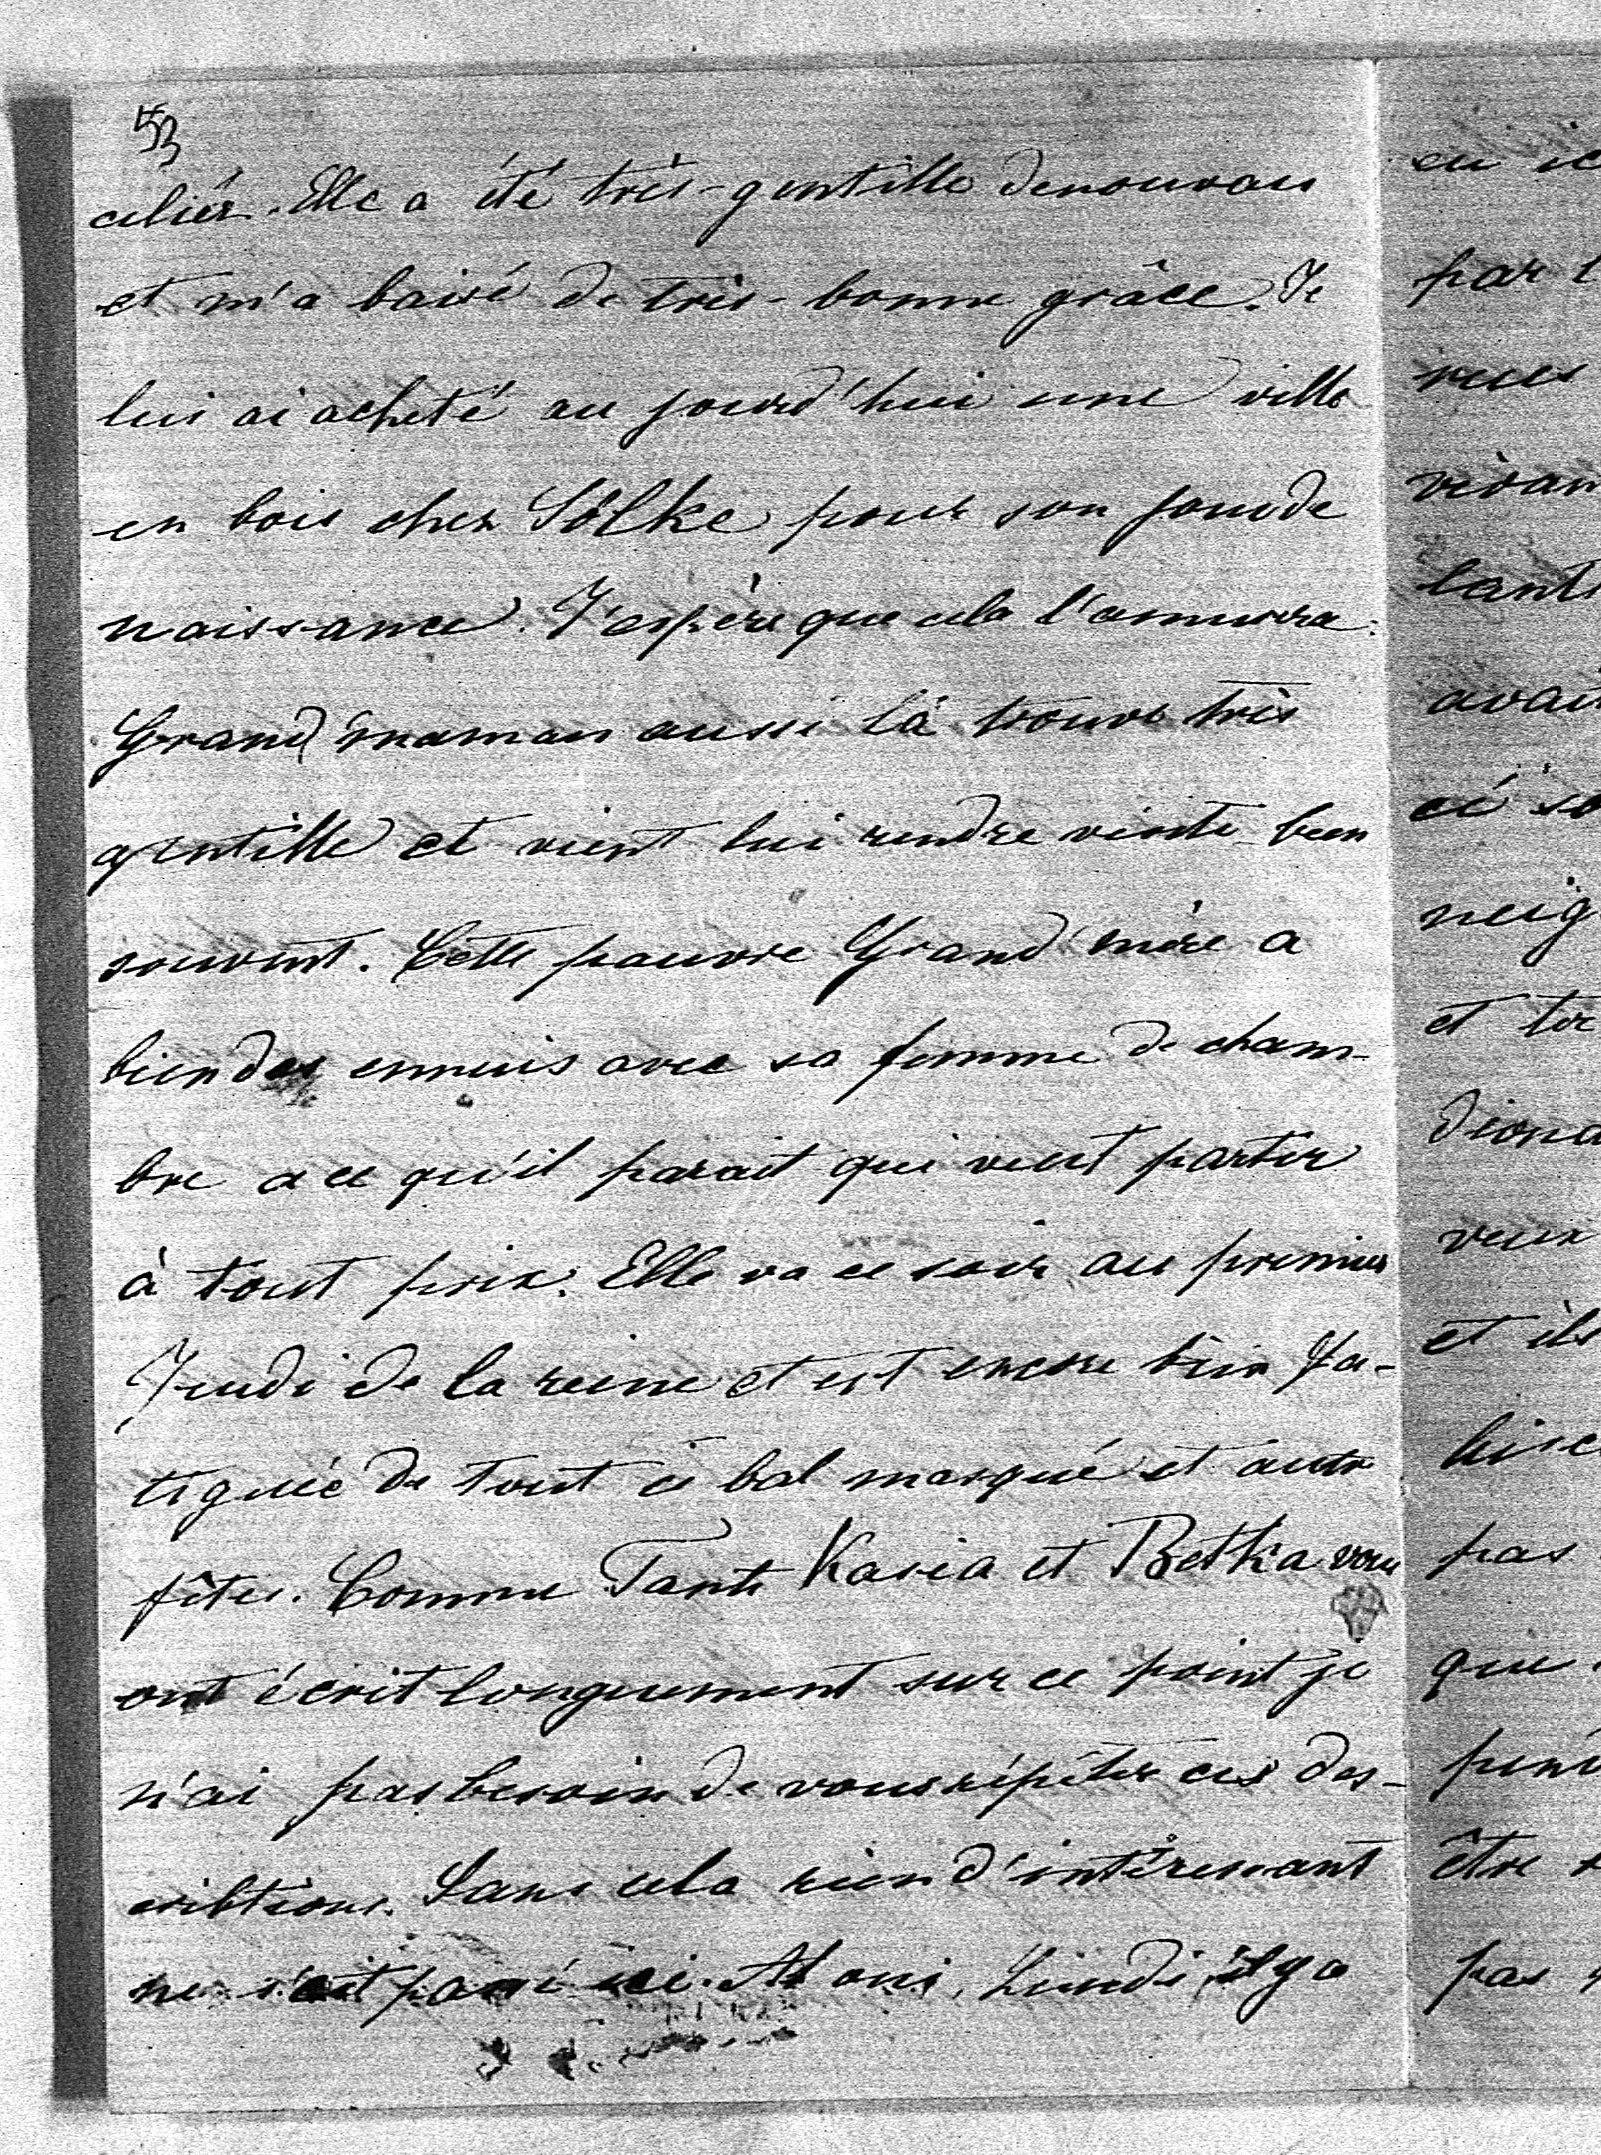 53
celier. Elle a été très-gentille denouveau
et m'a baisé de très-bonne grâce. Je
lui ai acheté au jourd'hui une ville
en bois chez Sölke pour son jour de
naissance. J'espère que cela l'amusera.
Grand'maman aussi là trouve très
gentille et vient lui rendre visite bien
souvent. Cette pauvre Grand'mère a
bien des ennuis avec sa femme de cham-
bre a ce qu'il parait qui veut partir
à tout prix. Elle va ce soir au premier
Jeudi de la reine et est encore bien fa-
tiguée de tout ce bal masqué et autre
fêtes. Comme Tante Kasia et Betka vous
ont écrit longuement sur ce point je
n'ai pas besoin de vous répéter ces des-
cribtions. Sans cela rien d'intéressant
ne s'est passé ici. Ah oui, Lundi il y a
par
rues
avait
neig
et
veux
et ils
pas
que
être
pas